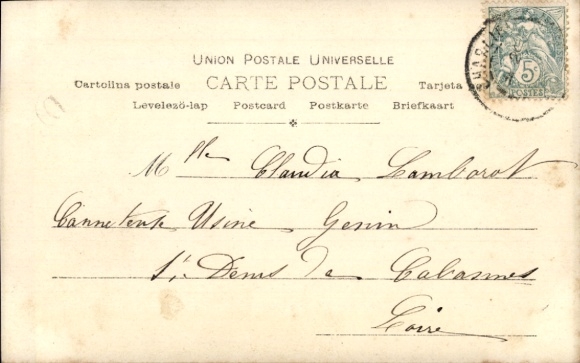 UNION POSTALE UNIVERSELLE
Cartolina postale CARTE POSTALE Tarjeta
Levelezö-lap Postcard Postkarte Briefkaart
5c
POSTES
Mlle Claudia Lamborot
Usine Genin
St Denis de Cabannes
Loire